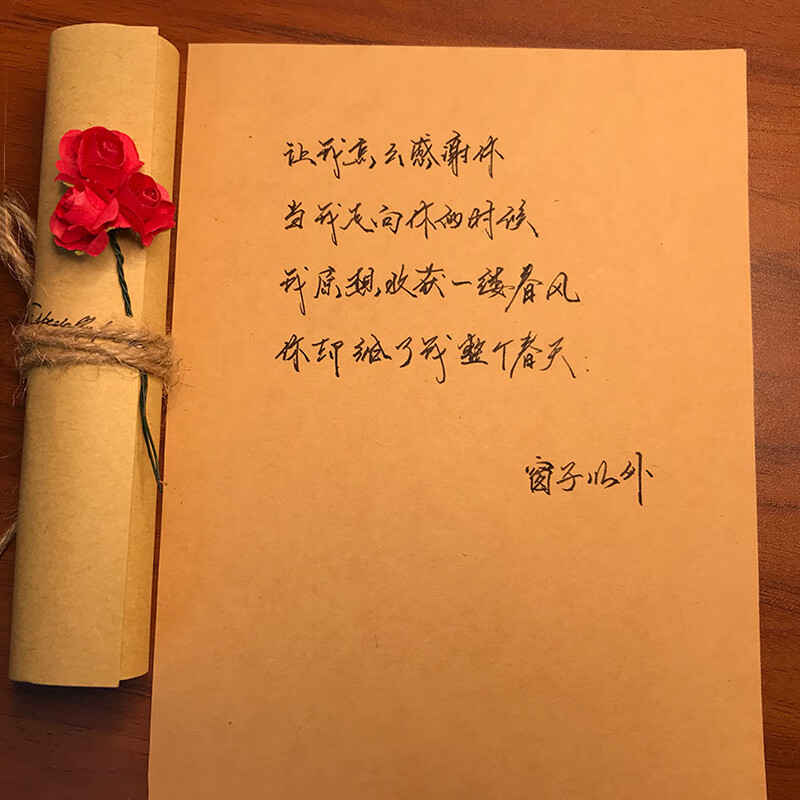 让我怎么感谢你
当我走向你的时候
我原想收获一缕春风
你却给了我整个春天.
窗子以外